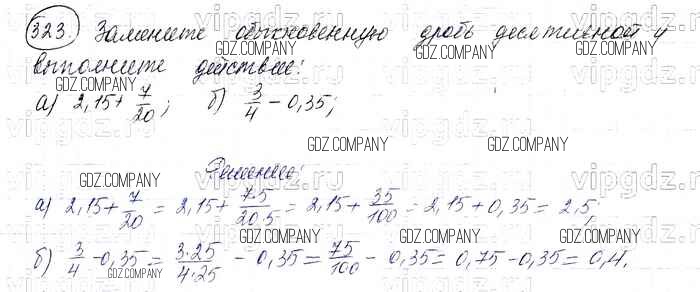 323. Замените обыкновенную дробь десятичной и
GDZ.COMPANY GDZ.COMPANY
выполните действие:
GDZ.COMPANY
а) 2,15+7/20; б) 3/4 - 0,35;
vipgdz.ru
GDZ.COMPANY GDZ.COMPANY
Решение:
GDZ.COMPANY
vipgdz.ru
а) 2,15+7/20 = 2,15+7·5/20·5 = 2,15+35/100 = 2,15+0,35 = 2,5;
GDZ.COMPANY
б) 3/4 - 0,35 = 3·25/4·25 - 0,35 = 75/100 - 0,35 = 0,75-0,35 = 0,4.
GDZ.COMPANY GDZ.COMPANY